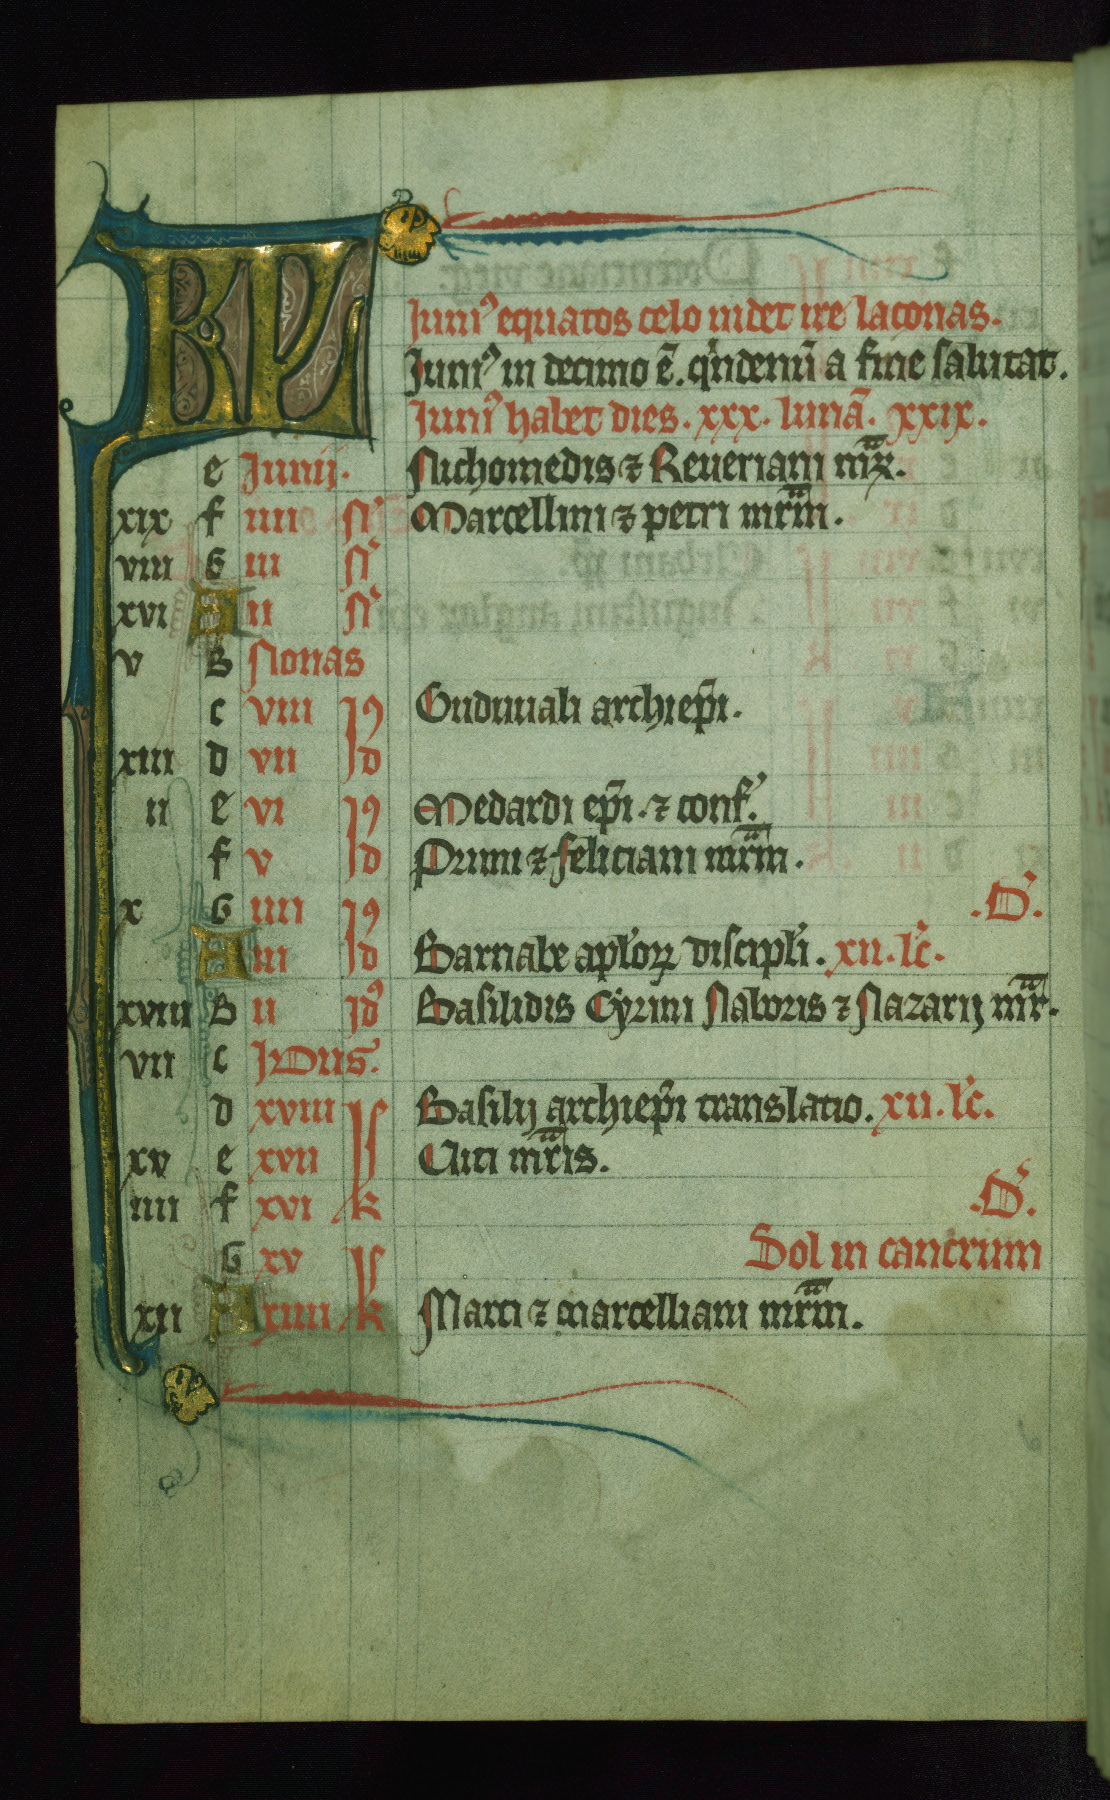 KL
Juni9 equatos celo uidet ire laconas.
Juni9 in decimo ē. q'ndenū a fine salutat.
Juni9 habet dies. xxx. lunā. xxix.
e Junij. Nichomedis ⁊ Reueriani mr̄.
xix f iiii N̄ Marcellini ⁊ petri mr̄m.
viii G iii N̄
xvi A ii N̄
v B Nonas
c viii J9 Gudiuali archiep̄i.
xiii d vii Jd
ii e vi J9 Medardi ep̄i. ⁊ conf'.
f v Jd Primi ⁊ feliciani mr̄m.
x G iiii J9 .D'.
A iii Jd Barnabe apl'oꝝ discipl'i. xii. lc̄.
xviii B ii Jd9 Basilidis Cyrini Naboris ⁊ Nazarij mr̄.
vii c JDus.
d xviii k Basilij archiep̄i translatio. xii. lc̄.
xv e xvii k Viti mr̄is.
iiii f xvi k .D'.
G xv k Sol in cancrum
xii A xiiii k Marci ⁊ marcelliani mr̄m.